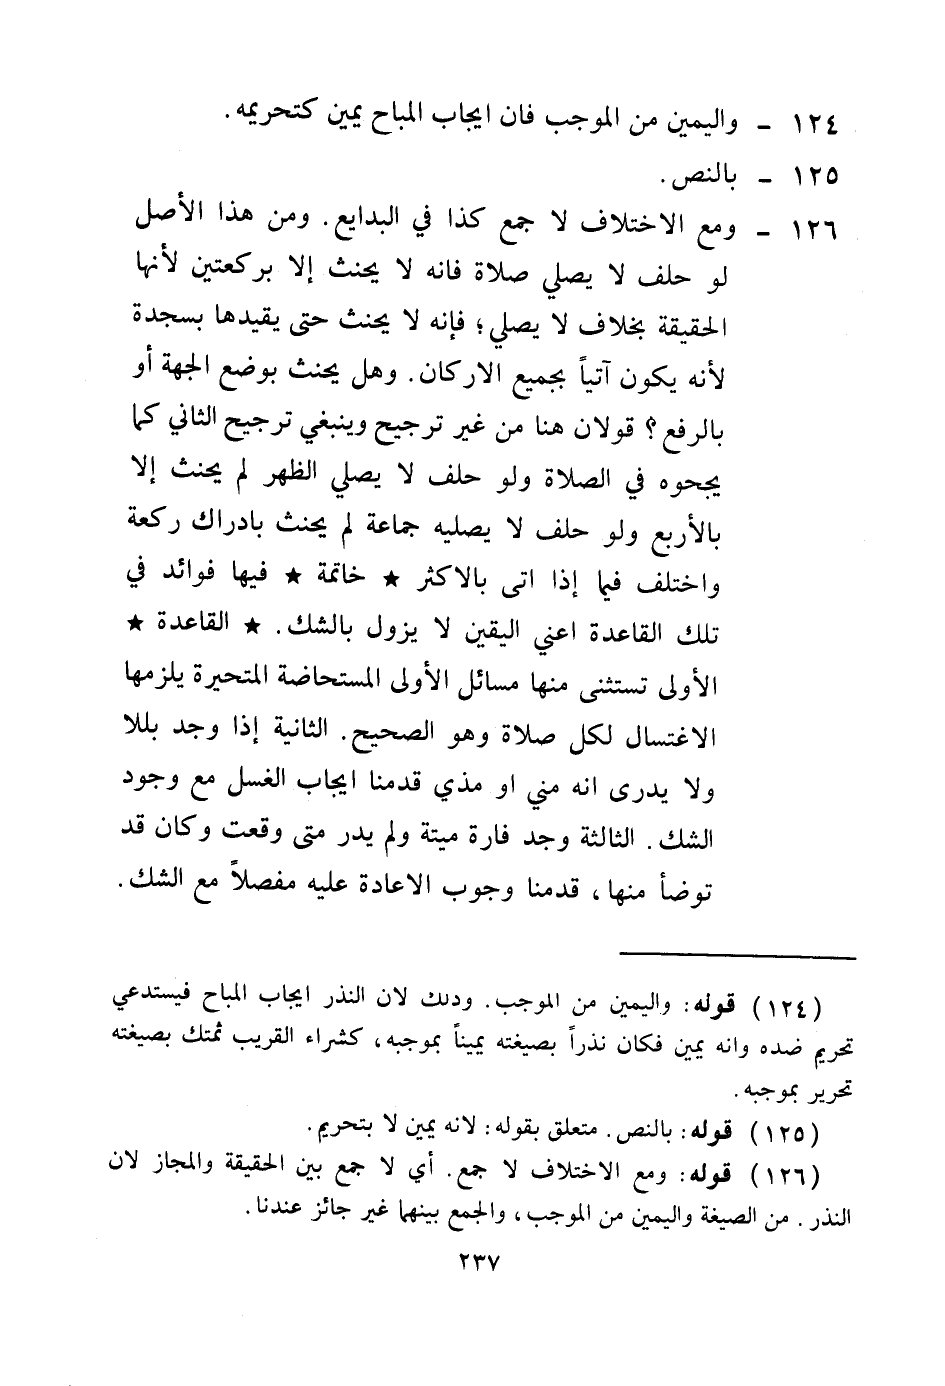 ١٢٤ - واليمين من الموجب فان ايجاب المباح يمين كتحريمه.
١٢٥ - بالنص.
١٢٦ - ومع الاختلاف لا جمع كذا في البدايع. ومن هذا الأصل
لو حلف لا يصلي صلاة فانه لا يحنث إلا بركعتين لأنها
الحقيقة بخلاف لا يصلي؛ فإنه لا يحنث حتى يقيدها بسجدة
لأنه يكون آتياً بجميع الاركان. وهل يحنث بوضع الجهة أو
بالرفع؟ قولان هنا من غير ترجيح وينبغي ترجيح الثاني كما
يجحوه في الصلاة ولو حلف لا يصلي الظهر لم يحنث إلا
بالأربع ولو حلف لا يصليه جماعة لم يحنث بادراك ركعة
واختلف فيما إذا اتى بالاكثر ★ خاتمة ★ فيها فوائد في
تلك القاعدة اعني اليقين لا يزول بالشك. ★ القاعدة ★
الأولى تستثنى منها مسائل الأولى المستحاضة المتحيرة يلزمها
الاغتسال لكل صلاة وهو الصحيح. الثانية إذا وجد بللا
ولا يدرى انه مني او مذي قدمنا ايجاب الغسل مع وجود
الشك. الثالثة وجد فارة ميتة ولم يدر متى وقعت وكان قد
توضأ منها، قدمنا وجوب الاعادة عليه مفصلاً مع الشك.
(١٢٤) قوله: واليمين من الموجب. وذلك لان النذر ايجاب المباح فيستدعي
تحريم ضده وانه يمين فكان نذراً بصيغته يميناً بموجبه، كشراء القريب تمتك بصيغته
تحرير بموجبه.
(١٢٥) قوله: بالنص. متعلق بقوله: لانه يمين لا بتحريم.
(١٢٦) قوله: ومع الاختلاف لا جمع. أي لا جمع بين الحقيقة والمجاز لان
النذر. من الصيغة واليمين من الموجب، والجمع بينهما غير جائز عندنا.
٢٣٧